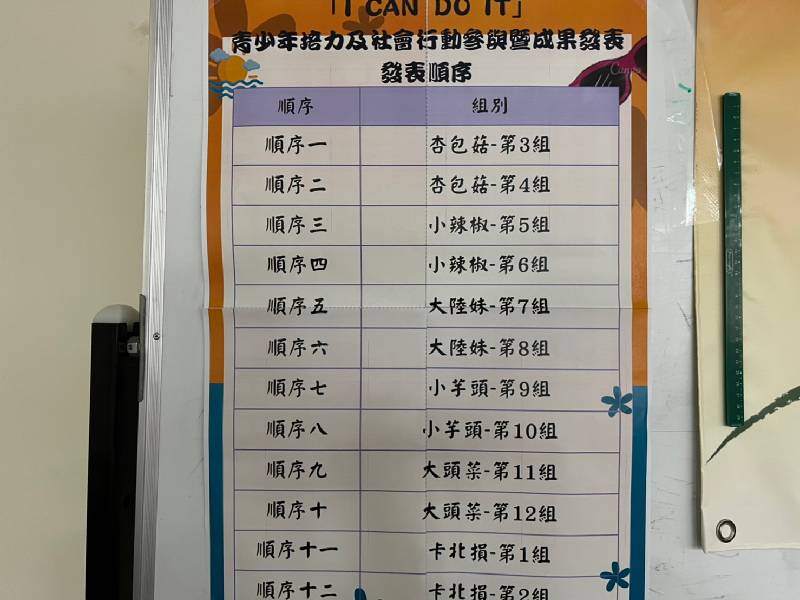 「I CAN DO IT」
青少年培力及社會行動參與暨成果發表
發表順序
順序 組別
順序一 杏包菇-第3組
順序二 杏包菇-第4組
順序三 小辣椒-第5組
順序四 小辣椒-第6組
順序五 大陸妹-第7組
順序六 大陸妹-第8組
順序七 小芋頭-第9組
順序八 小芋頭-第10組
順序九 大頭菜-第11組
順序十 大頭菜-第12組
順序十一 卡北損-第1組
順序十二 卡北損-第2組